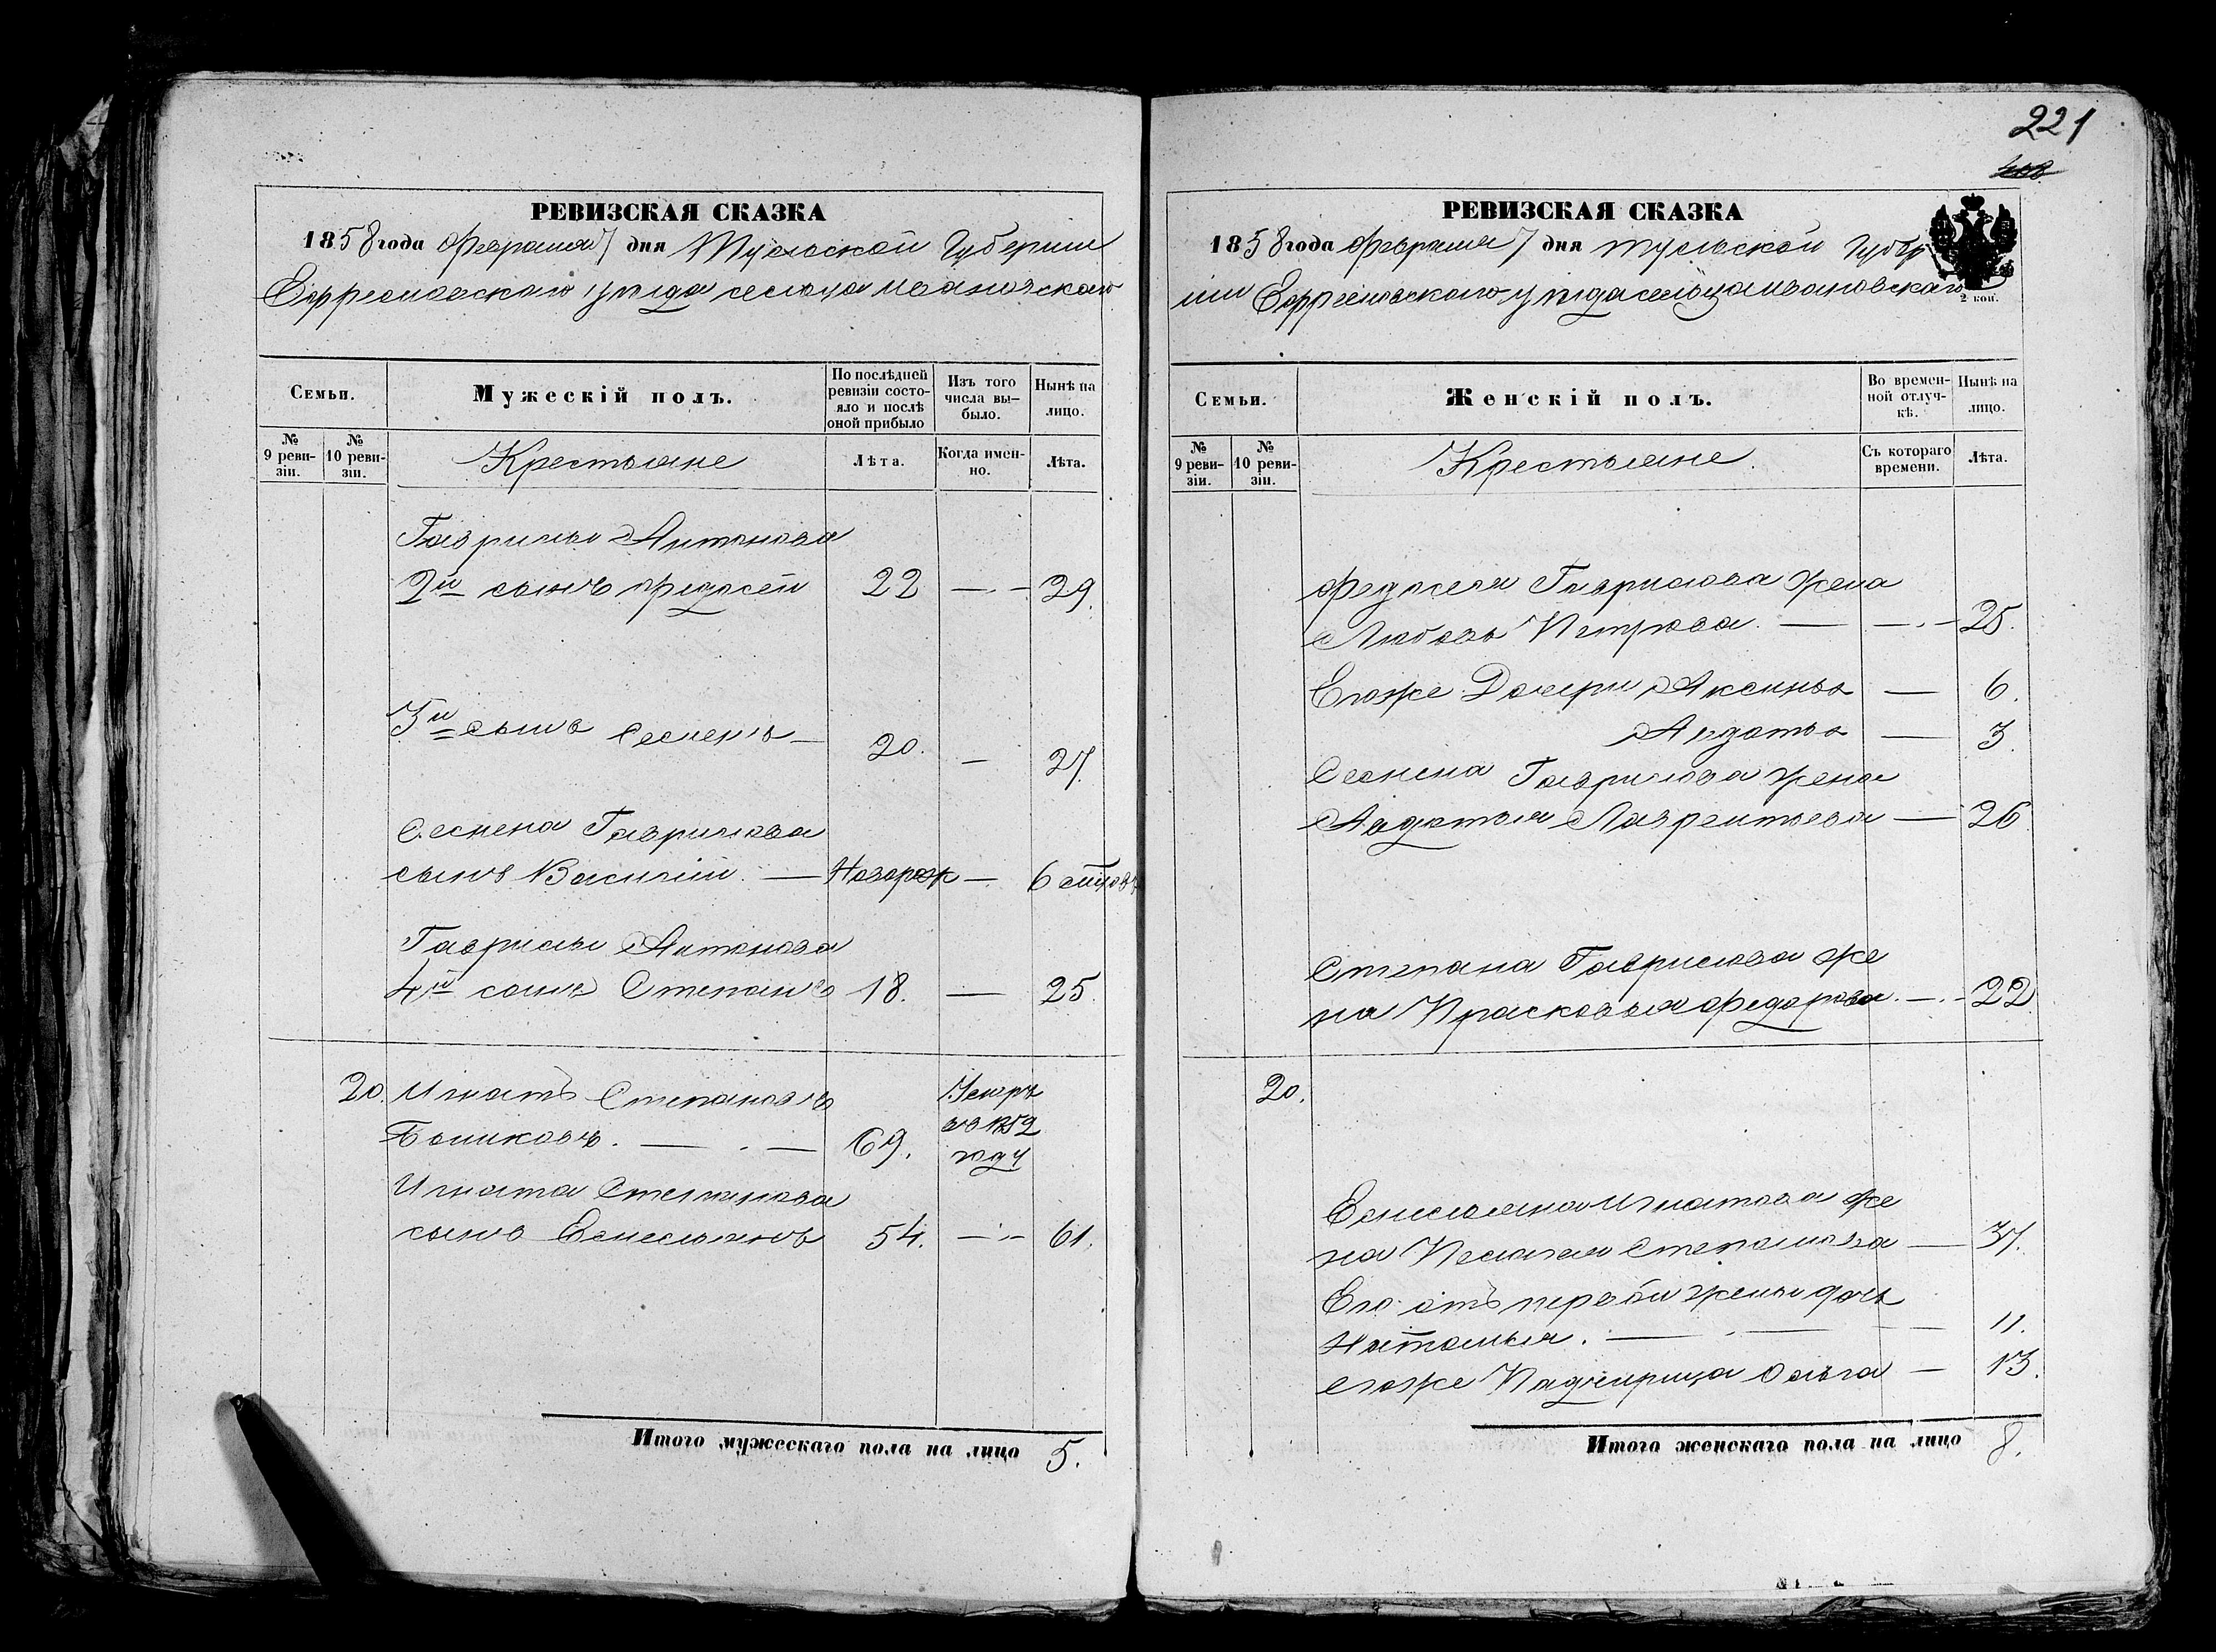 РЕВИЗСКАЯ СКАЗКА
1858 года Февраля 7 дня Тульской Губернии
Ефремовскаго уѣзда сельца Ивановскаго
Семьи.
Мужескій полъ.
По послѣдней ревизіи состояло и послѣ оной прибыло
Изъ того числа выбыло.
Нынѣ на лицо.
№ 9 ревизіи.
№ 10 ревизіи.
Крестьяне
Лѣта.
Когда именно.
Лѣта.
Гаврилы Антонова
2й сынъ Федосей 22 — 29.
3й сынъ Семенъ — 20. — 27.
Семена Гаврилова
сынъ Василій. — Новорож — 6
Гаврилы Антонова
4й сынъ Степанъ 18. — 25.
20. Игнатъ Степановъ
69. Умеръ въ 1852 году
Игната Степанова
сынъ Емельянъ 54. — 61.
Итого мужескаго пола на лицо 5.
221
РЕВИЗСКАЯ СКАЗКА
1858 года Февраля 7 дня Тульской Губер
нии Ефремовскаго уѣзда сельца Ивановскаго
2 коп.
Семьи.
Женскій полъ.
Во временной отлучкѣ.
Нынѣ на лицо.
№ 9 ревизіи.
№ 10 ревизіи.
Крестьяне.
Съ котораго времени.
Лѣта.
Федосея Гаврилова жена
Любовь Петрова. — — 25.
Егоже Дочери Аксинья — 6.
Авдотья — 3.
Семена Гаврилова жена
Авдотья Лаврентьева — 26
Степана Гаврилова же
на Прасковья Федорова. — 22
20.
Емельяна Игнатова же
на Пелагея Степанова — 37.
Его отъ первой жены дочь
Наталья. — — 11.
егоже Падчирица Ольга — 13.
Итого женскаго пола на лицо 8.